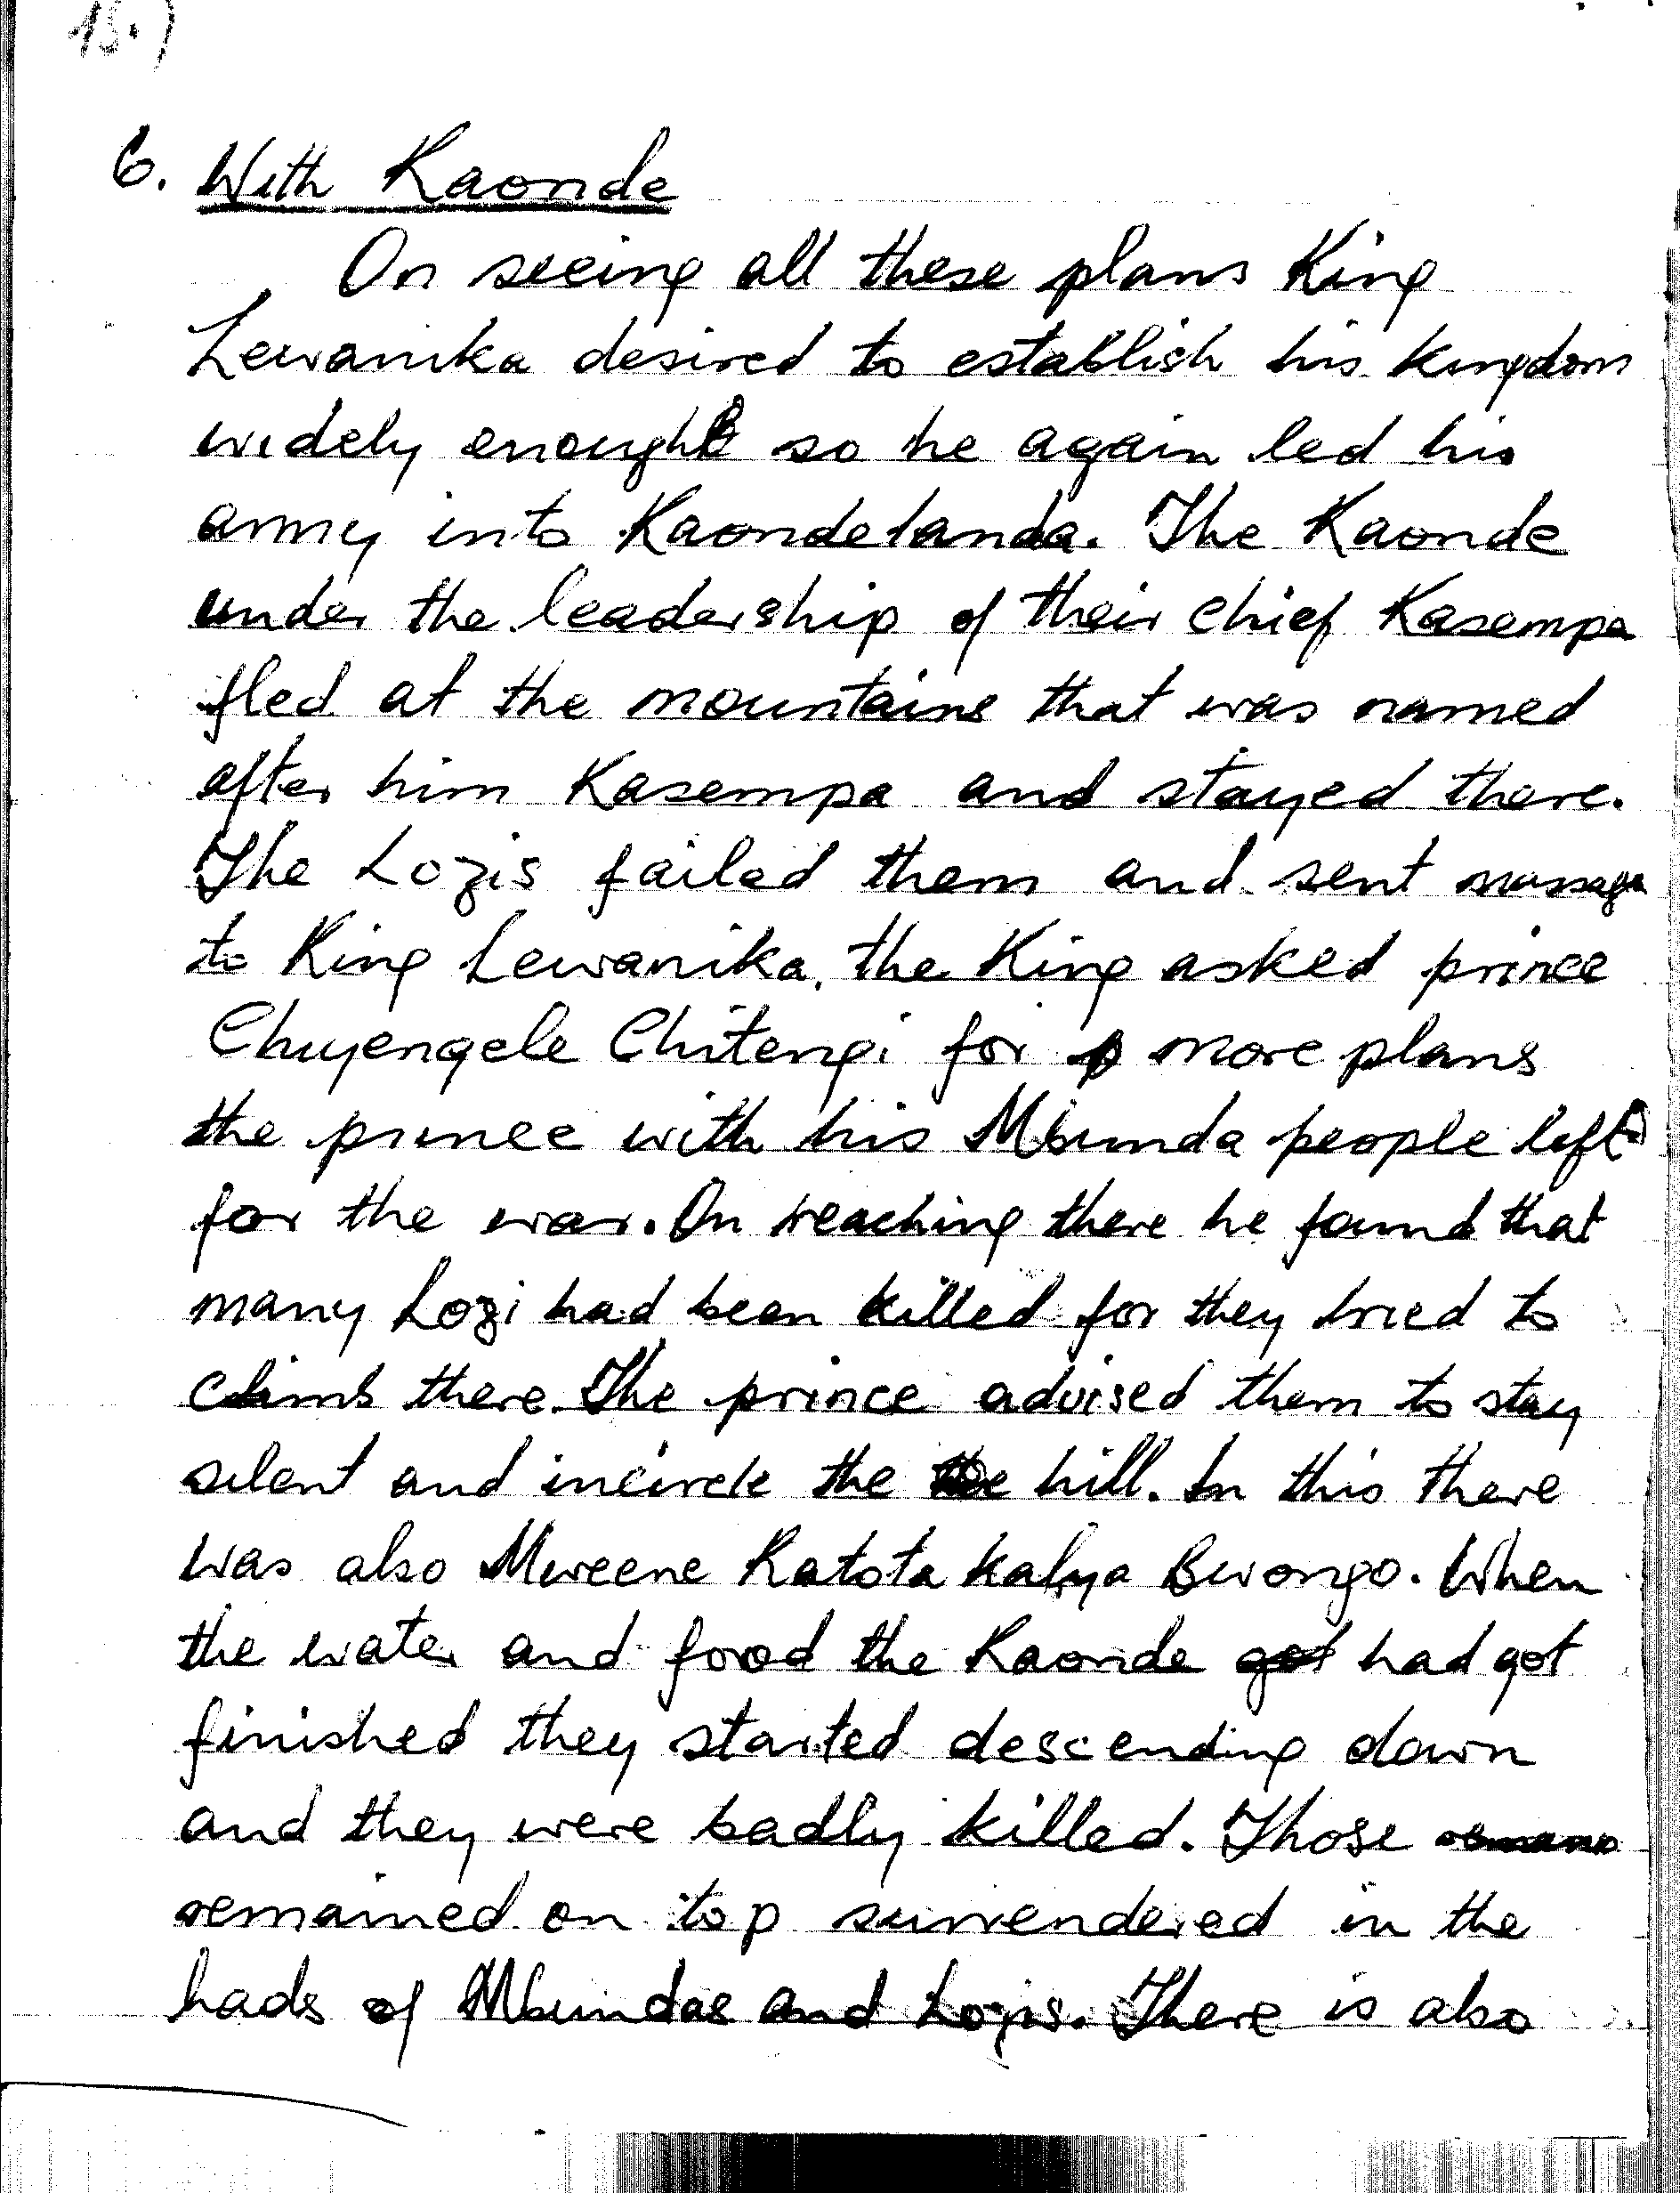 15.)
6. With Kaonde
On seeing all these plans King
Lewanika desired to establish his kingdom
widely enough so he again led his
army into Kaondelanda. The Kaonde
under the leadership of their chief Kasempa
fled at the mountains that was named
after him Kasempa and stayed there.
The Lozis failed them and sent massage
to King Lewanika, the King asked prince
Chuyengele Chitengi for more plans
the prince with his Mbunda people left
for the war. On reaching there he found that
many Lozi had been killed for they tried to
climb there. The prince advised them to stay
silent and incircle the hill. In this there
was also Mweene Katota kalya Bwongo. When
the water and food the Kaonde had got
finished they started descending down
and they were badly killed. Those
remained on top surrendered in the
hads of Mbundas and Lozis. There is also